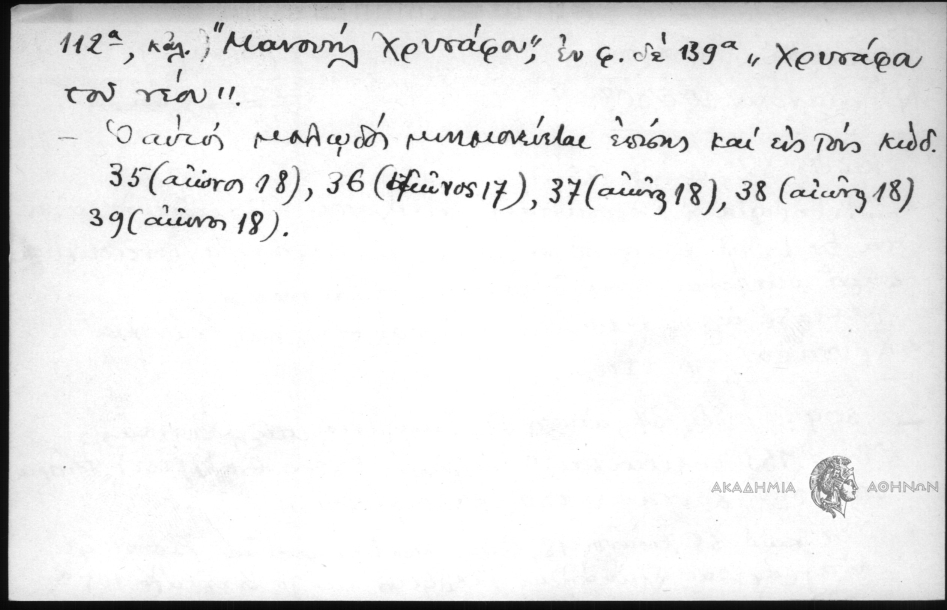 112α, κάλ. "Μανουήλ Χρυσάφου", ἐν φ. δὲ 139α „ Χρυσάφου
τοῦ νέου".
– Ὁ αὐτὸς μελῳδὸς μνημονεύεται ἐπίσης καὶ εἰς τοὺς κώδ.
35 (αἰῶνος 18), 36 (αἰῶνος 17), 37 (αἰῶνος 18), 38 (αἰῶνος 18)
39 (αἰῶνος 18).
ΑΚΑΔΗΜΙΑ ΑΘΗΝΩΝ